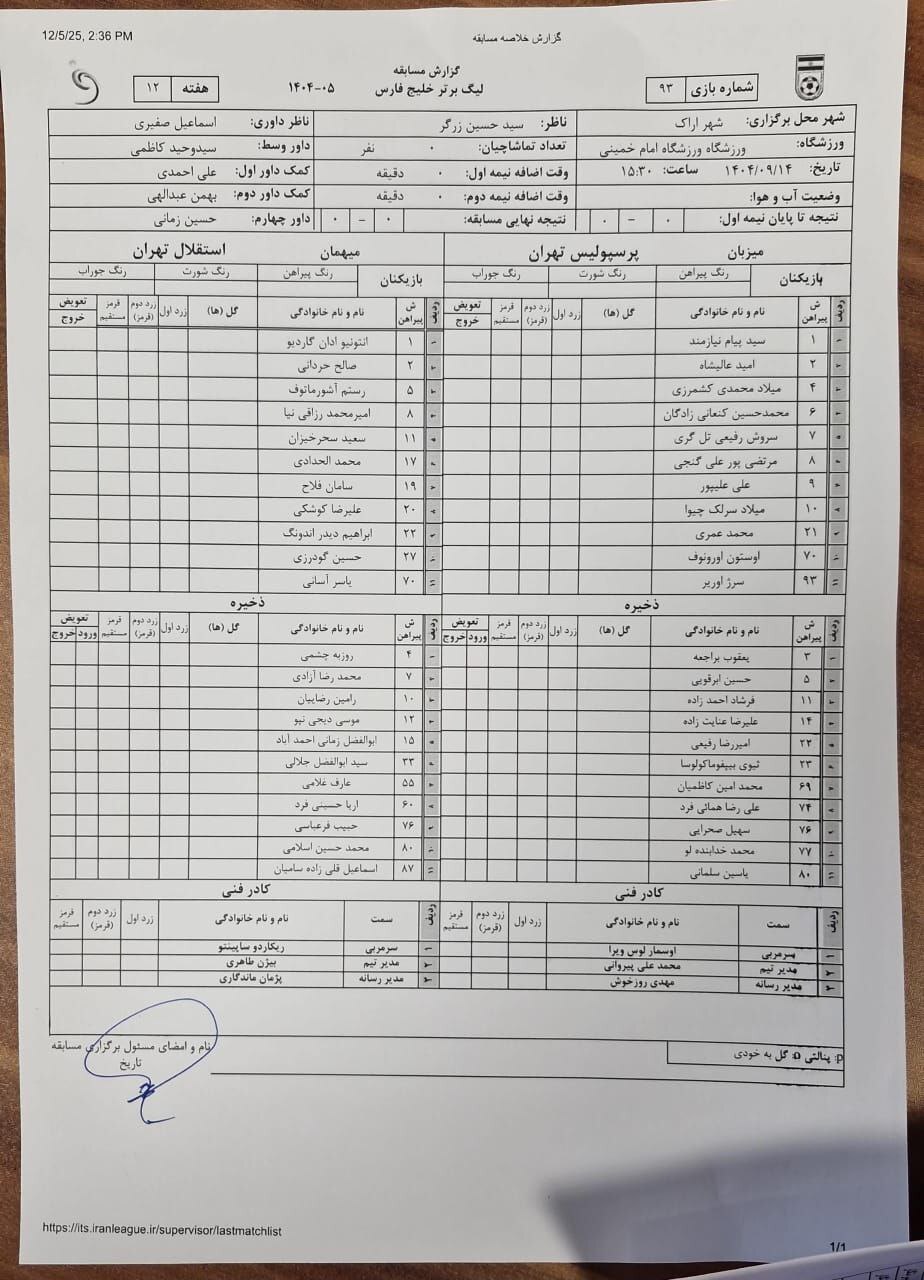 12/5/25, 2:36 PM
گزارش خلاصه مسابقه
گزارش مسابقه
لیگ برتر خلیج فارس ۱۴۰۴-۰۵
شماره بازی ۹۳
هفته ۱۲
شهر محل برگزاری: شهر اراک ناظر: سید حسین زرگر ناظر داوری: اسماعیل صفیری
ورزشگاه: ورزشگاه ورزشگاه امام خمینی تعداد تماشاچیان: ۰ نفر داور وسط: سیدوحید کاظمی
تاریخ: ۱۴۰۴/۰۹/۱۴ ساعت: ۱۵:۳۰ وقت اضافه نیمه اول: ۰ دقیقه کمک داور اول: علی احمدی
وضعیت آب و هوا: وقت اضافه نیمه دوم: ۰ دقیقه کمک داور دوم: بهمن عبدالهی
نتیجه تا پایان نیمه اول: ۰ – ۰ نتیجه نهایی مسابقه: ۰ – ۰ داور چهارم: حسین زمانی
میزبان پرسپولیس تهران میهمان استقلال تهران
بازیکنان رنگ پیراهن رنگ شورت رنگ جوراب بازیکنان رنگ پیراهن رنگ شورت رنگ جوراب
ردیف ش پیراهن نام و نام خانوادگی گل (ها) زرد اول زرد دوم (قرمز) قرمز مستقیم تعویض خروج ردیف ش پیراهن نام و نام خانوادگی گل (ها) زرد اول زرد دوم (قرمز) قرمز مستقیم تعویض خروج
۱ ۱ سید پیام نیازمند ۱ ۱ انتونیو ادان گاردیو
۲ ۲ امید عالیشاه ۲ ۲ صالح حردانی
۳ ۴ میلاد محمدی کشمرزی ۳ ۵ رستم آشورماتوف
۴ ۶ محمدحسین کنعانی زادگان ۴ ۸ امیرمحمد رزاقی نیا
۵ ۷ سروش رفیعی تل گری ۵ ۱۱ سعید سحرخیزان
۶ ۸ مرتضی پور علی گنجی ۶ ۱۷ محمد الحدادی
۷ ۹ علی علیپور ۷ ۱۹ سامان فلاح
۸ ۱۰ میلاد سرلک چیوا ۸ ۲۰ علیرضا کوشکی
۹ ۲۱ محمد عمری ۹ ۲۲ ابراهیم دیدر اندونگ
۱۰ ۷۰ اوستون اورونوف ۱۰ ۲۷ حسین گودرزی
۱۱ ۹۳ سرژ اوریر ۱۱ ۷۰ یاسر آسانی
ذخیره ذخیره
ردیف ش پیراهن نام و نام خانوادگی گل (ها) زرد اول زرد دوم (قرمز) قرمز مستقیم تعویض ورود خروج ردیف ش پیراهن نام و نام خانوادگی گل (ها) زرد اول زرد دوم (قرمز) قرمز مستقیم تعویض ورود خروج
۱ ۳ یعقوب براجعه ۱ ۴ روزبه چشمی
۲ ۵ حسین ابرقویی ۲ ۷ محمد رضا آزادی
۳ ۱۱ فرشاد احمد زاده ۳ ۱۰ رامین رضاییان
۴ ۱۴ علیرضا عنایت زاده ۴ ۱۲ موسی دیجی نپو
۵ ۲۲ امیررضا رفیعی ۵ ۱۵ ابوالفضل زمانی احمد آباد
۶ ۲۳ ثیوی بیپفوماکولوسا ۶ ۳۳ سید ابوالفضل جلالی
۷ ۶۹ محمد امین کاظمیان ۷ ۵۵ عارف غلامی
۸ ۷۴ علی رضا همائی فرد ۸ ۶۰ اریا حسینی فرد
۹ ۷۶ سهیل صحرایی ۹ ۷۶ حبیب فرعباسی
۱۰ ۷۷ محمد خدابنده لو ۱۰ ۸۰ محمد حسین اسلامی
۱۱ ۸۰ یاسین سلمانی ۱۱ ۸۷ اسماعیل قلی زاده سامیان
کادر فنی کادر فنی
ردیف سمت نام و نام خانوادگی زرد اول زرد دوم (قرمز) قرمز مستقیم ردیف سمت نام و نام خانوادگی زرد اول زرد دوم (قرمز) قرمز مستقیم
۱ سرمربی اوسمار لوس ویرا ۱ سرمربی ریکاردو ساپینتو
۲ مدیر تیم محمد علی پیروانی ۲ مدیر تیم بیژن طاهری
۳ مدیر رسانه مهدی روزخوش ۳ مدیر رسانه پژمان ماندگاری
p: پنالتی o: گل به خودی
نام و امضای مسئول برگزاری مسابقه
تاریخ
https://its.iranleague.ir/supervisor/lastmatchlist
1/1